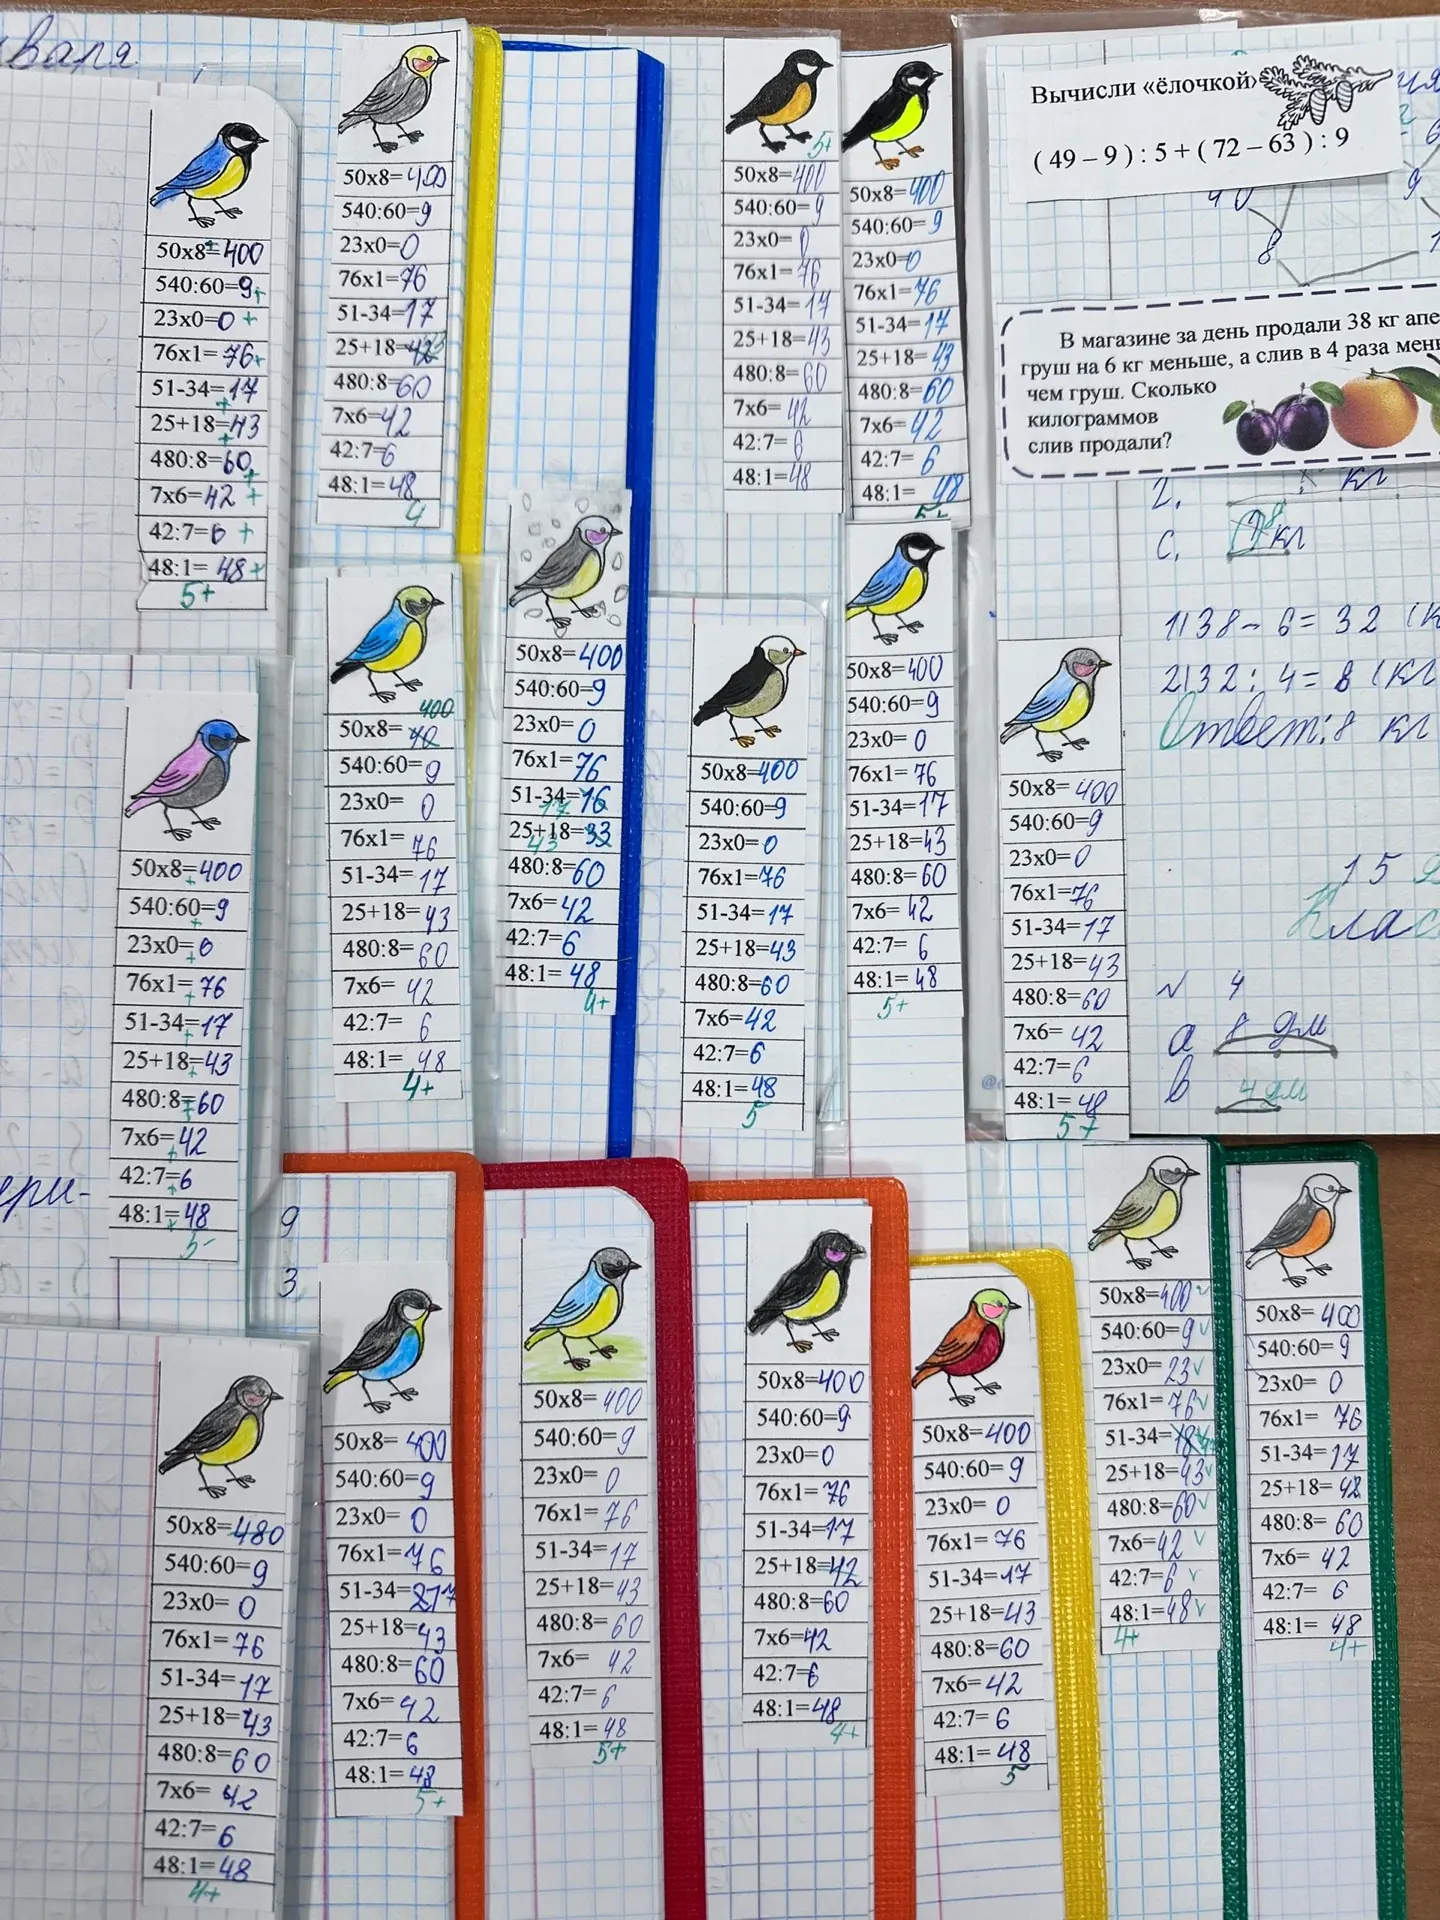 варя
50x8=400
540:60=9
23x0=0
76x1=76
51-34=17
25+18=43
480:8=60
7x6=42
42:7=6
48:1=48
5+
50x8=400
540:60=9
23x0=0
76x1=76
51-34=17
25+18=
480:8=60
7x6=42
42:7=6
48:1=48
4
5+
50x8=400
540:60=9
23x0=0
76x1=76
51-34=17
25+18=43
480:8=60
7x6=42
42:7=6
48:1=48
50x8=400
540:60=9
23x0=0
76x1=76
51-34=17
25+18=43
480:8=60
7x6=42
42:7=6
48:1=48
5+
Вычисли «ёлочкой»
( 49 – 9 ) : 5 + ( 72 – 63 ) : 9
40
8
9
В магазине за день продали 38 кг апе
груш на 6 кг меньше, а слив в 4 раза мень
чем груш. Сколько
килограммов
слив продали?
кг
С. кг
1) 38 - 6 = 32 (к
2) 32 : 4 = 8 (кг
Ответ: 8 кг
15
Клас
№ 4
а 8 дм
в 4 дм
50x8=400
540:60=9
23x0=0
76x1=76
51-34=17
25+18=43
480:8=60
7x6=42
42:7=6
48:1=48
5-
ри-
400
50x8=40
540:60=9
23x0=0
76x1=76
51-34=17
25+18=43
480:8=60
7x6=42
42:7=6
48:1=48
4+
50x8=400
540:60=9
23x0=0
76x1=76
51-34=16
17
25+18=33
43
480:8=60
7x6=42
42:7=6
48:1=48
4+
50x8=400
540:60=9
23x0=0
76x1=76
51-34=17
25+18=43
480:8=60
7x6=42
42:7=6
48:1=48
5
50x8=400
540:60=9
23x0=0
76x1=76
51-34=17
25+18=43
480:8=60
7x6=42
42:7=6
48:1=48
5+
50x8=400
540:60=9
23x0=0
76x1=76
51-34=17
25+18=43
480:8=60
7x6=42
42:7=6
48:1=48
5+
9
3
50x8=480
540:60=9
23x0=0
76x1=76
51-34=17
25+18=43
480:8=60
7x6=42
42:7=6
48:1=48
4+
50x8=400
540:60=9
23x0=0
76x1=76
51-34=17
25+18=43
480:8=60
7x6=42
42:7=6
48:1=48
5+
50x8=400
540:60=9
23x0=0
76x1=76
51-34=17
25+18=43
480:8=60
7x6=42
42:7=6
48:1=48
5+
50x8=400
540:60=9
23x0=0
76x1=76
51-34=17
25+18=42
480:8=60
7x6=42
42:7=6
48:1=48
4+
50x8=400
540:60=9
23x0=0
76x1=76
51-34=17
25+18=43
480:8=60
7x6=42
42:7=6
48:1=48
5
50x8=400
540:60=9
23x0=23
76x1=76
51-34=18
25+18=43
480:8=60
7x6=42
42:7=6
48:1=48
4+
50x8=400
540:60=9
23x0=0
76x1=76
51-34=17
25+18=42
480:8=60
7x6=42
42:7=6
48:1=48
4+